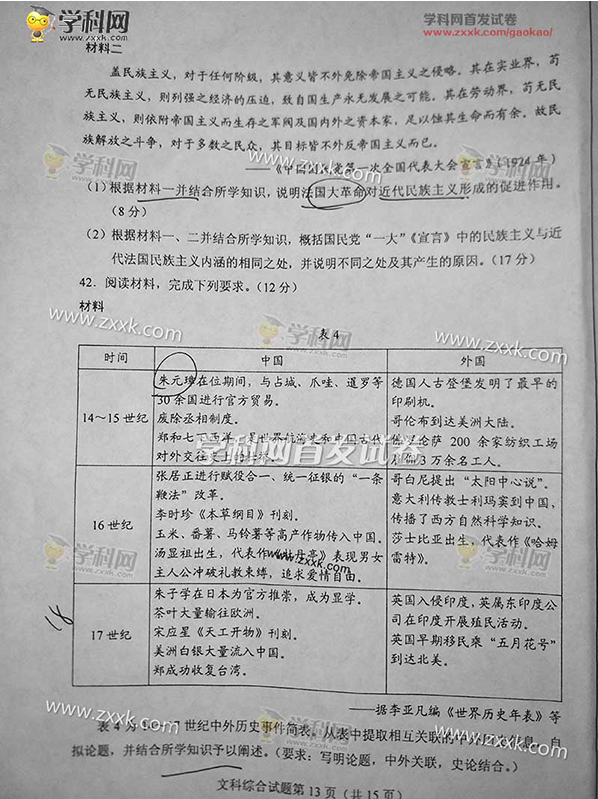 学科网
www.zxxk.com
学科网首发试卷
www.zxxk.com/gaokao/
材料二
盖民族主义,对于任何阶级,其意义皆不外免除帝国主义之侵略。其在实业界,苟
无民族主义,则列强之经济的压迫,致自国生产永无发展之可能。其在劳动界,苟无民族
主义,则依附帝国主义而生存之军阀及国内外之资本家,足以蚀其生命而有余。故民
族解放之斗争,对于多数之民众,其目标皆不外反帝国主义而已。
——《中国国民党第一次全国代表大会宣言》(1924 年)
(1)根据材料一并结合所学知识,说明法国大革命对近代民族主义形成的促进作用。
(8 分)
(2)根据材料一、二并结合所学知识,概括国民党“一大”《宣言》中的民族主义与近
代法国民族主义内涵的相同之处,并说明不同之处及其产生的原因。(17 分)
42.阅读材料,完成下列要求。(12 分)
材料
表 4
时间 中国 外国
14~15 世纪
朱元璋在位期间,与占城、爪哇、暹罗等
30 余国进行官方贸易。
废除丞相制度。
郑和七下西洋,是世界航海史和中国古代
对外交往史上的
德国人古登堡发明了最早的
印刷机。
哥伦布到达美洲大陆。
佛罗伦萨 200 余家纺织工场
3 万余名工人。
16 世纪
张居正进行赋役合一、统一征银的“一条
鞭法”改革。
李时珍《本草纲目》刊刻。
玉米、番薯、马铃薯等高产作物传入中国。
汤显祖出生,代表作《牡丹亭》表现男女
主人公冲破礼教束缚,追求爱情自由。
哥白尼提出“太阳中心说”。
意大利传教士利玛窦到中国,
传播了西方自然科学知识。
莎士比亚出生,代表作《哈姆
雷特》。
17 世纪
朱子学在日本为官方推崇,成为显学。
茶叶大量输往欧洲。
宋应星《天工开物》刊刻。
美洲白银大量流入中国。
郑成功收复台湾。
英国入侵印度,英属东印度公
司在印度开展殖民活动。
英国早期移民乘“五月花号”
到达北美。
——据李亚凡编《世界历史年表》等
表 4 为 世纪中外历史事件简表。从表中提取相互关联的中外历史信息,自
拟论题,并结合所学知识予以阐述。(要求:写明论题,中外关联,史论结合。)
文科综合试题第 13 页(共 15 页)
学科网首发试卷